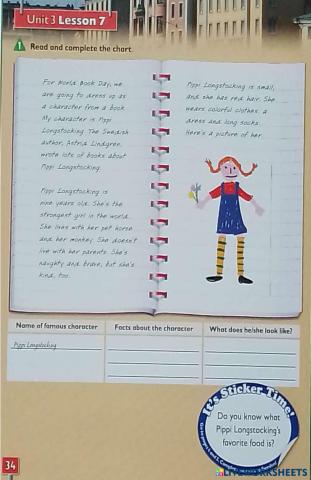 Unit 3 Lesson 7
1 Read and complete the chart.
For World Book Day, we
are going to dress up as
a character from a book.
My character is Pippi
Longstocking. The Swedish
author, Astrid Lindgren,
wrote lots of books about
Pippi Longstocking.
Pippi Longstocking is
nine years old. She's the
strongest girl in the world.
She lives with her pet horse
and her monkey. She doesn't
live with her parents. She's
naughty and brave, but she's
kind, too.
Pippi Longstocking is small,
and she has red hair. She
wears colorful clothes: a
dress and long socks.
Here's a picture of her.
Name of famous character
Facts about the character
What does he/she look like?
Pippi Longstocking
It's Sticker Time!
Do you know what
Pippi Longstocking's
favorite food is?
34
LIVEWORKSHEETS